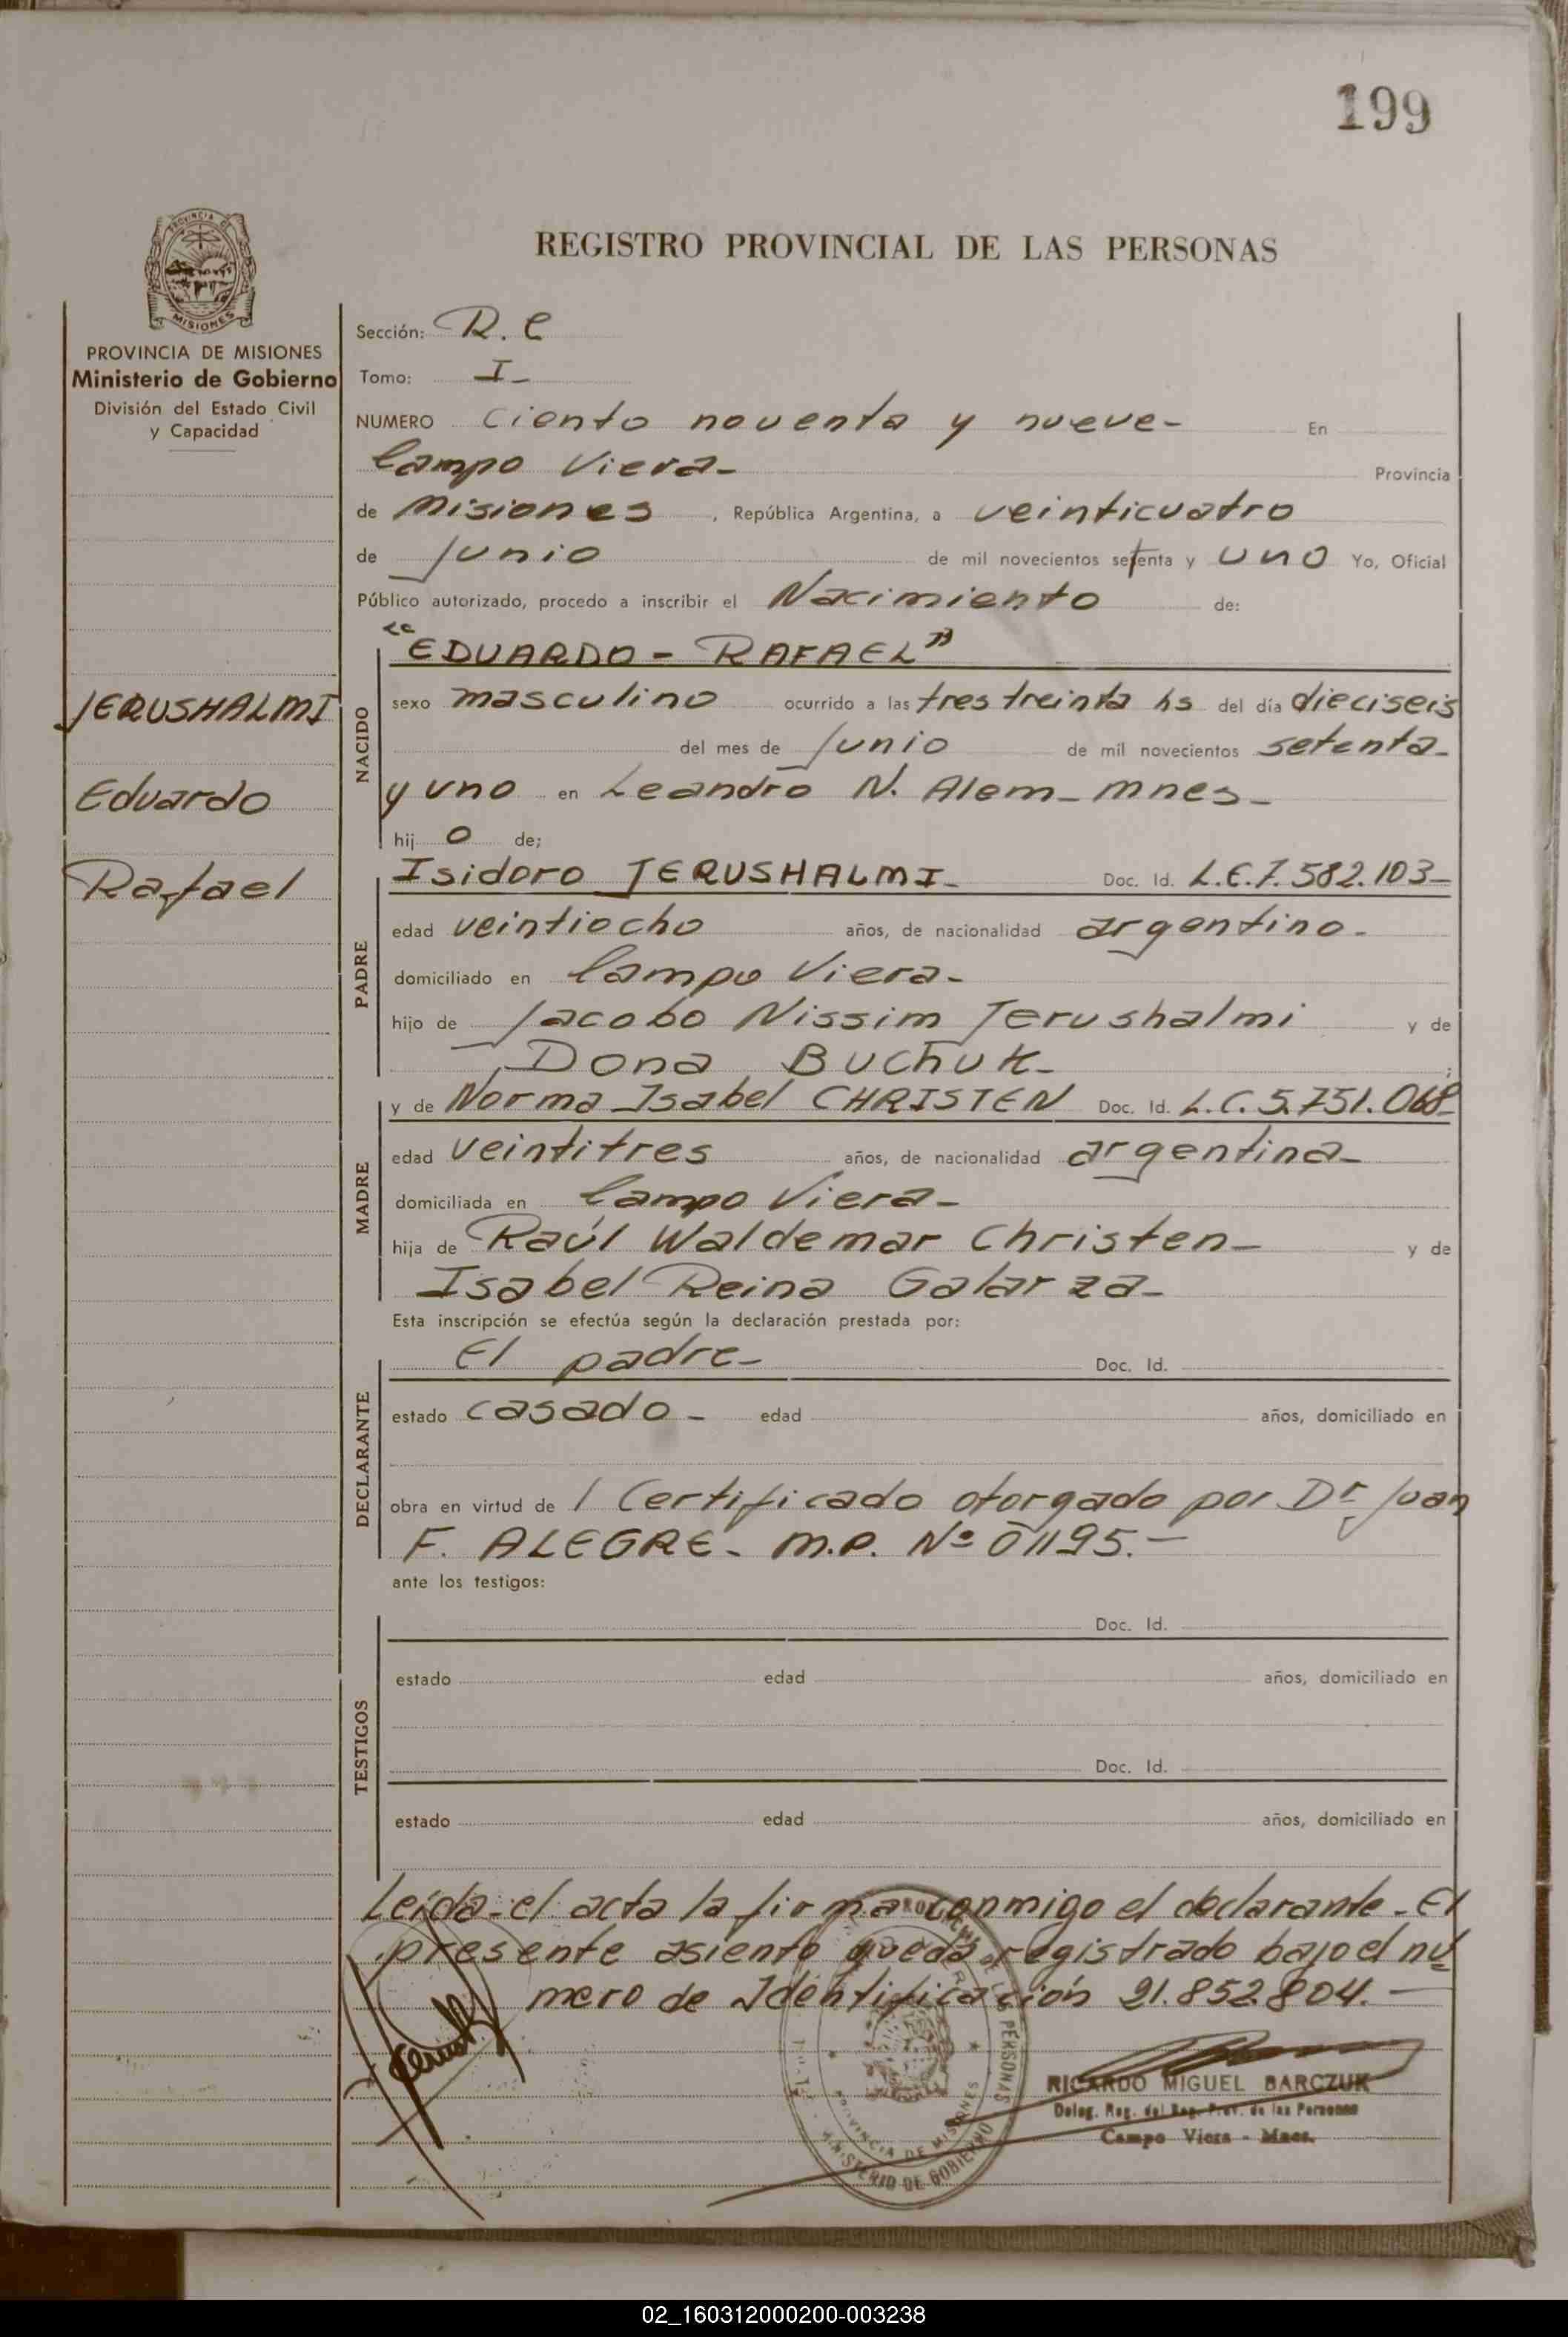 199
REGISTRO PROVINCIAL DE LAS PERSONAS
PROVINCIA DE MISIONES
Ministerio de Gobierno
División del Estado Civil
y Capacidad
JERUSHALMI
Eduardo
Rafael
Sección: R.C
Tomo: I-
NUMERO Ciento noventa y nueve- En
Campo Viera- Provincia
de Misiones, República Argentina, a veinticuatro
de Junio de mil novecientos setenta y uno Yo, Oficial
Público autorizado, procedo a inscribir el Nacimiento de:
NACIDO
"EDUARDO - RAFAEL"
sexo masculino ocurrido a las tres treinta hs del día dieciseis
del mes de Junio de mil novecientos setenta-
y uno en Leandro N. Alem- Mnes-
hijo de;
PADRE
Isidoro JERUSHALMI- Doc. Id. L.E.7.582.103-
edad veintiocho años, de nacionalidad argentino-
domiciliado en Campo Viera-
hijo de Jacobo Nissim Jerushalmi y de
Dona BUCHUK- ;
MADRE
y de Norma Isabel CHRISTEN Doc. Id. L.C.5.751.068-
edad veintitres años, de nacionalidad argentina-
domiciliada en Campo Viera-
hija de Raúl Waldemar Christen- y de
Isabel Reina Galarza-
Esta inscripción se efectúa según la declaración prestada por:
DECLARANTE
El padre- Doc. Id.
estado casado- edad años, domiciliado en
obra en virtud de 1 Certificado otorgado por Dr Juan
F. ALEGRE- M.P. Nº 01195.-
ante los testigos:
TESTIGOS
Doc. Id.
estado edad años, domiciliado en
Doc. Id.
estado edad años, domiciliado en
Leída el acta la firma conmigo el declarante- El
presente asiento queda registrado bajo el nú=
mero de Identificación 21.852.804.-
PROVINCIA DE MISIONES
MINISTERIO DE GOBIERNO
RICARDO MIGUEL BARCZUK
Deleg. Reg. del Reg. Prov. de las Personas
Campo Viera - Mnes.
02_160312000200-003238